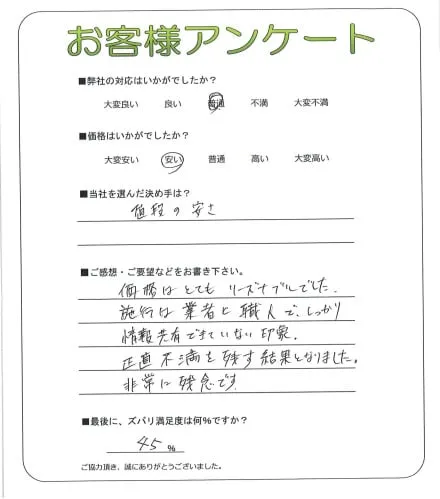 お客様アンケート
■弊社の対応はいかがでしたか？
大変良い 良い 普通 不満 大変不満
■価格はいかがでしたか？
大変安い 安い 普通 高い 大変高い
■当社を選んだ決め手は？
値段の安さ
■ご感想・ご要望などをお書き下さい。
価格はとてもリーズナブルでした.
施行は業者と職人で、しっかり
情報共有できていない印象.
正直不満を残す結果となりました。
非常に残念です
■最後に、ズバリ満足度は何％ですか？
45 %
ご協力頂き、誠にありがとうございました。